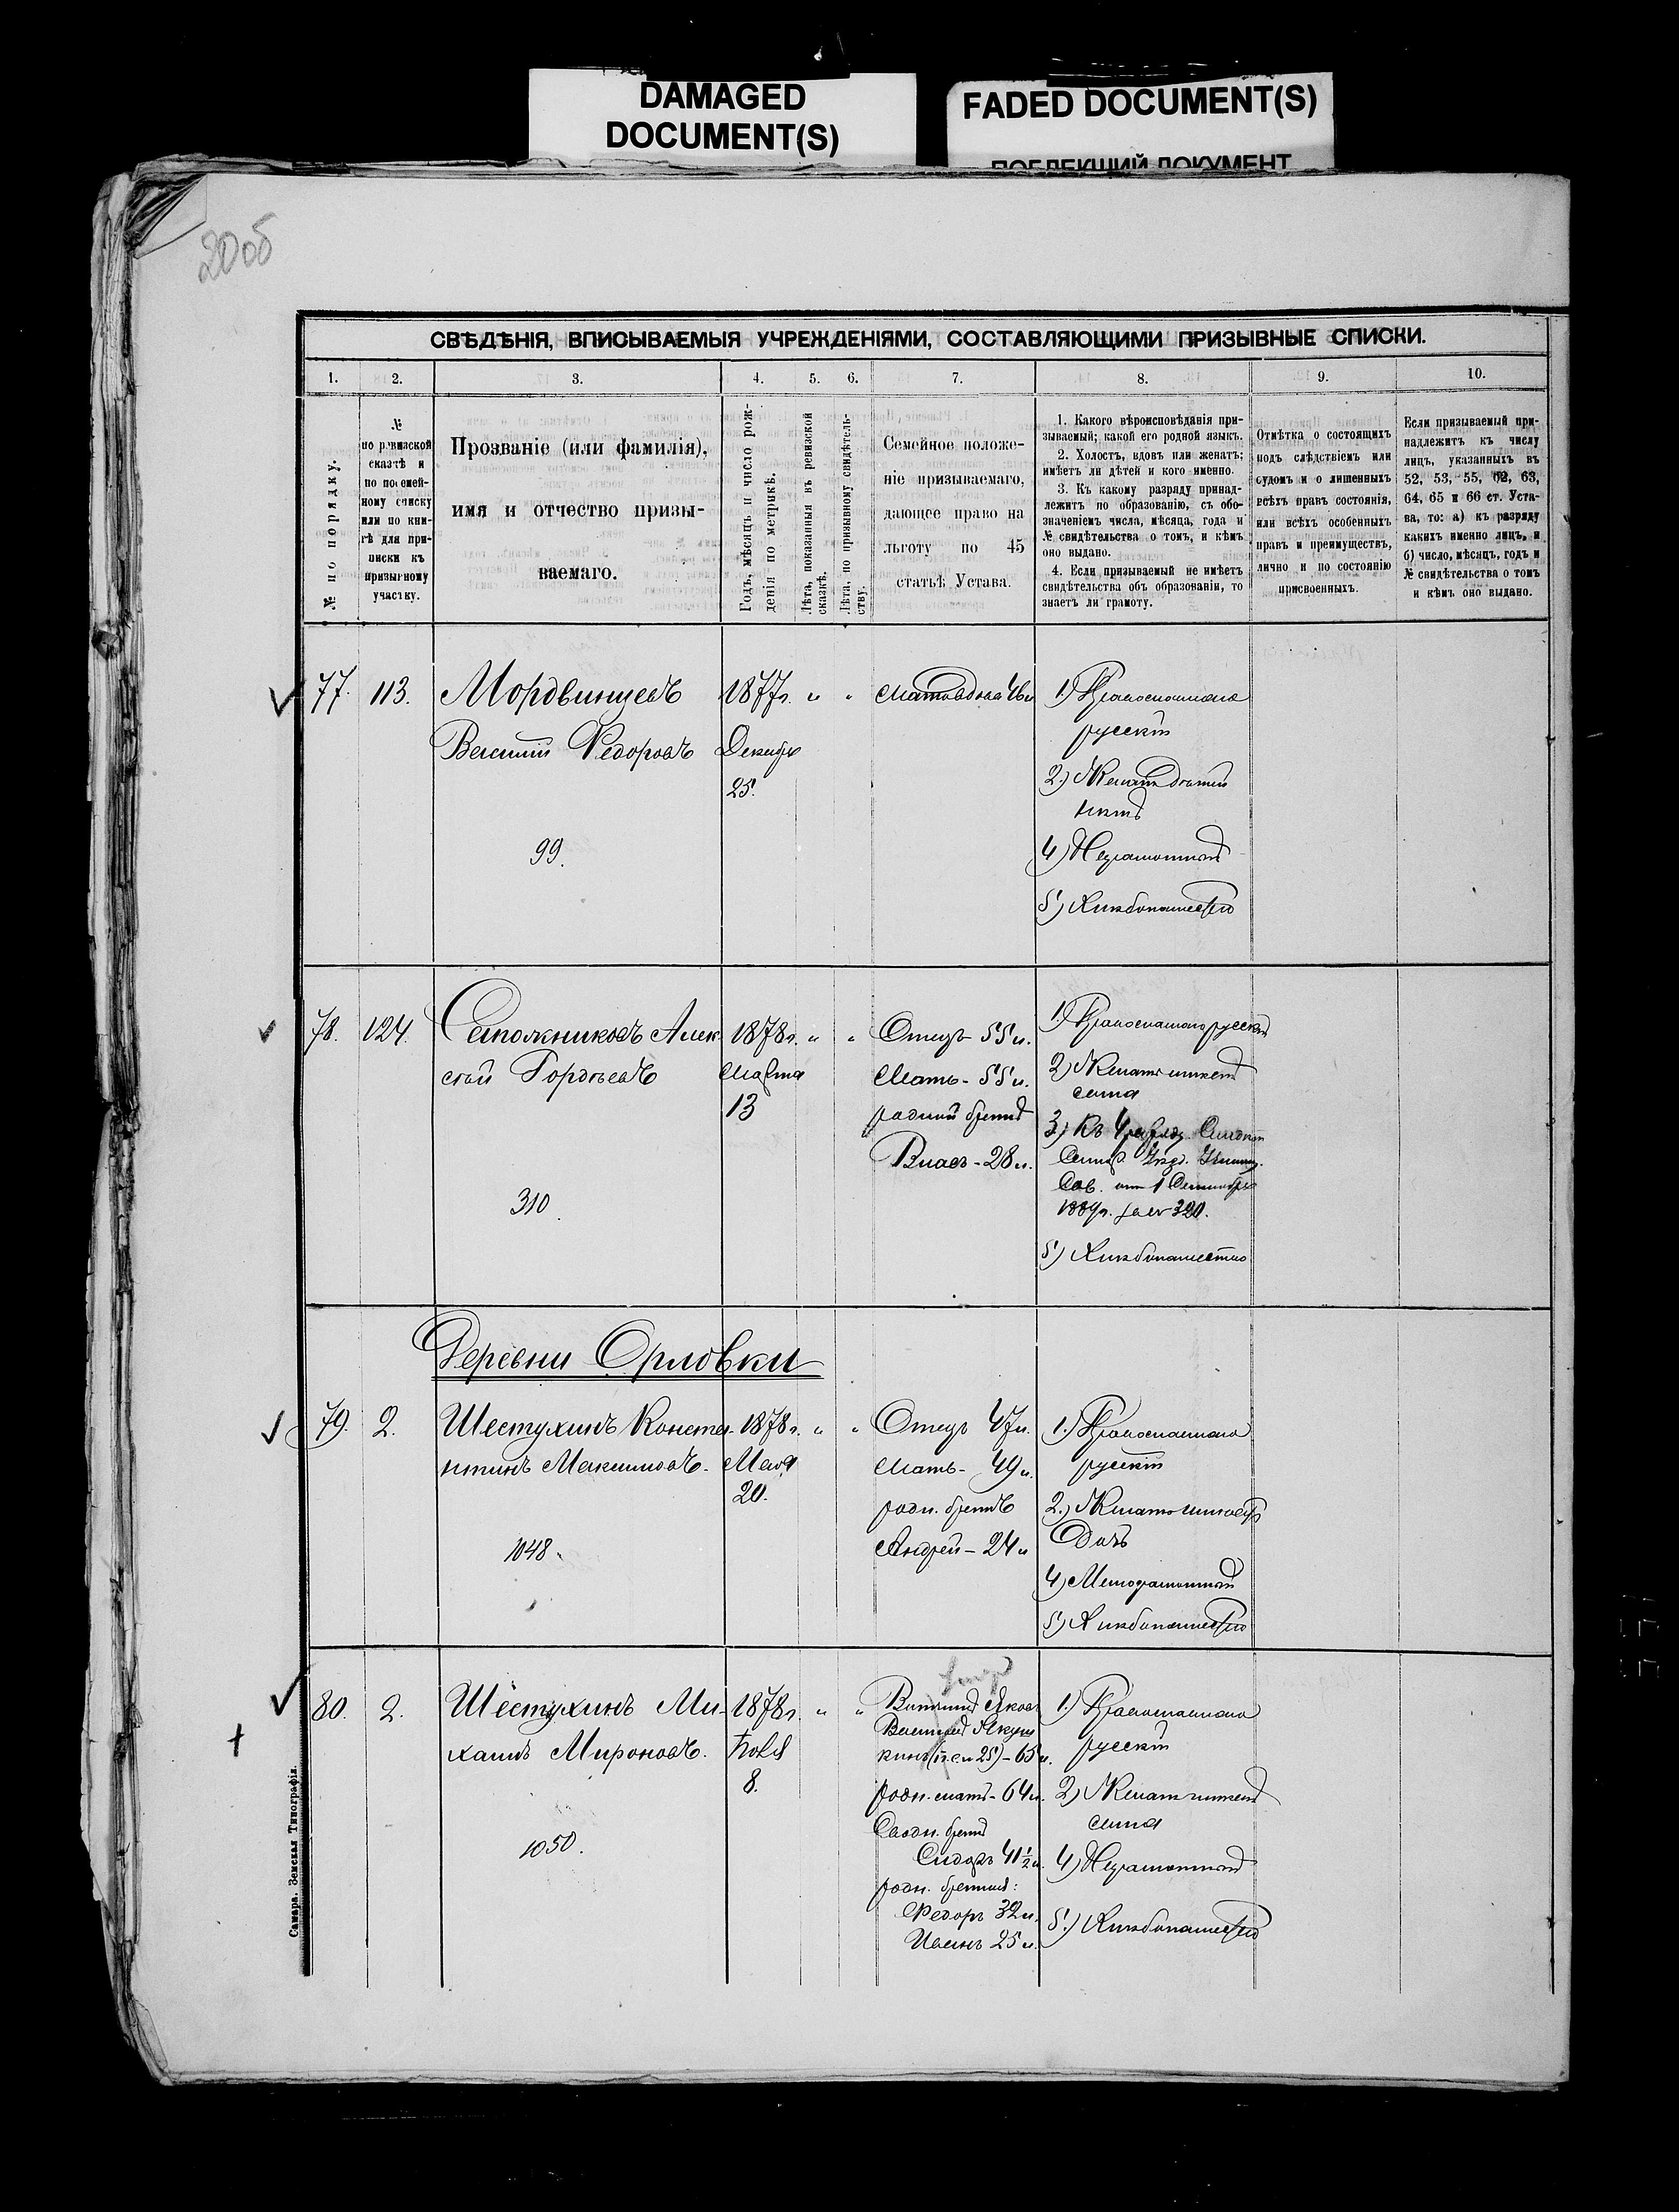 DAMAGED
DOCUMENT(S)
FADED DOCUMENT(S)
ПОБЛЕКШИЙ ДОКУМЕНТ
20об
СВѢДѢНІЯ, ВПИСЫВАЕМЫЯ УЧРЕЖДЕНІЯМИ, СОСТАВЛЯЮЩИМИ ПРИЗЫВНЫЕ СПИСКИ.
1. 2. 3. 4. 5. 6. 7. 8. 9. 10.
№ по порядку.
№
по ревизской
сказтѣ и
по посемей-
ному списку
или по кни-
гѣ для при-
писки къ
призывному
участку.
Прозваніе (или фамилія),
имя и отчество призы-
ваемаго.
Годъ, мѣсяцъ и число рож-
денія по метрикѣ.
Лѣта, показанныя въ ревизской
сказкѣ.
Лѣта, по призывному свидѣтель-
ству.
Семейное положе-
ніе призываемаго,
дающее право на
льготу по 45
статьѣ Устава.
1. Какого вѣроисповѣданія при-
зываемый; какой его родной языкъ.
2. Холостъ, вдовъ или женатъ;
имѣетъ ли дѣтей и кого именно.
3. Къ какому разряду принад-
лежитъ по образованію, съ обо-
значеніемъ числа, мѣсяца, года и
№ свидѣтельства о томъ, и кѣмъ
оно выдано.
4. Если призываемый не имѣетъ
свидѣтельства объ образованіи, то
знаетъ ли грамоту.
Отмѣтка о состоящихъ
подъ слѣдствіемъ или
судомъ и о лишенныхъ
всѣхъ правъ состоянія,
или всѣхъ особенныхъ
правъ и преимуществъ,
лично и по состоянію
присвоенныхъ.
Если призываемый при-
надлежитъ къ числу
лицъ, указанныхъ въ
52, 53, 55, 62, 63,
64, 65 и 66 ст. Уста-
ва, то: а) къ разряду
какихъ именно лицъ, и
б) число, мѣсяцъ, годъ и
№ свидѣтельства о томъ
и кѣмъ оно выдано.
77. 113. Мордвинцевъ 1877г. " " Мать вдова 46л
Василій Федоровъ Декабря
25.
99.
1.) Православнаго
русскій
2.) Женатъ дѣтей
нѣтъ
4) Неграмотный
5) Хлѣбопашество
78. 124. Сапожниковъ Алек 1878г. " " Отецъ 55 л.
сѣй Гордѣевъ Марта Мать - 55 л.
13 родной братъ
Власъ - 28 л.
310
1.) Православнаго русскій
2) Женатъ имѣетъ
сына
3) Къ 4 разряду. Свидѣт
Самар. Уѣзд. Училищ.
Сов. отъ 1 Сентября
5) Хлѣбопашество
Деревни Орловки
79. 2. Шестухинъ Конста- 1878г. " " Отецъ 47л.
нтинъ Максимовъ. Мая Мать - 49л.
20. родн. братъ
Андрей - 24 л
1048
1.) Православнаго
русскій
2.) Женатъ имѣетъ
дочь
4) Малограмотный
5) Хлѣбопашество
80. 2. Шестухинъ Ми- 1878г. " "
хаилъ Мироновъ. Ноля
8.
1050.
кинъ (п.с.и 25) - 65 л.
родн. мать - 64 л.
Сводн. братъ
Сидоръ 41 1/2 л.
родн. братья:
Федоръ 32 л.
Иванъ 25 л.
1.) Православнаго
русскій
2) Женатъ имѣетъ
сына
4) Неграмотный
5.) Хлѣбопашество
Самара. Земская Типографія.